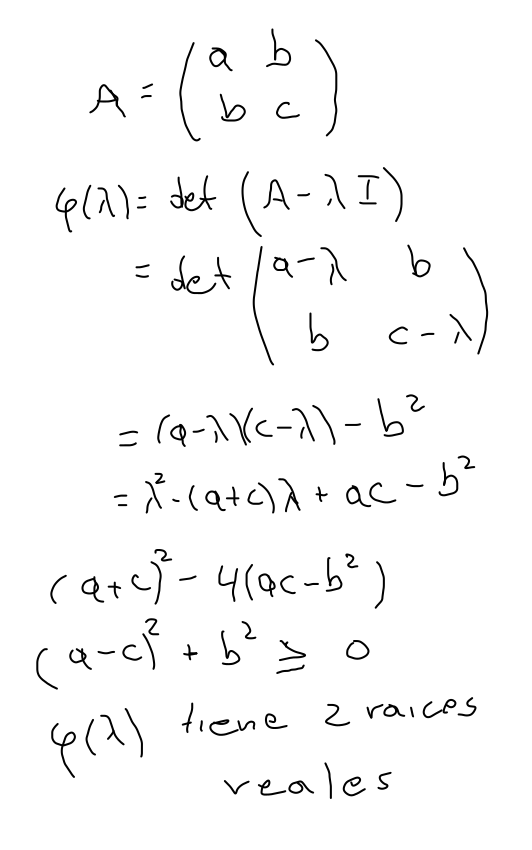 A = (a b
b c)
φ(λ) = det (A - λ I)
= det (a-λ b
b c-λ)
= (a-λ)(c-λ) - b²
= λ² - (a+c)λ + ac - b²
(a+c)² - 4(ac-b²)
(a-c)² + b² ≥ 0
φ(λ) tiene 2 raices
reales